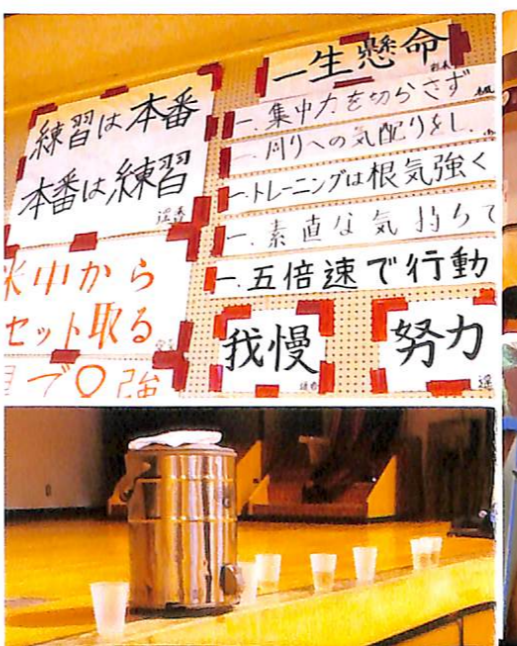 練習は本番
本番は練習
から
セット取る
一生懸命
一.集中力を切らさず
一.周りへの気配りをし
一.トレーニングは根気強く
一.素直な気持ちで
一.五倍速で行動
我慢
努力